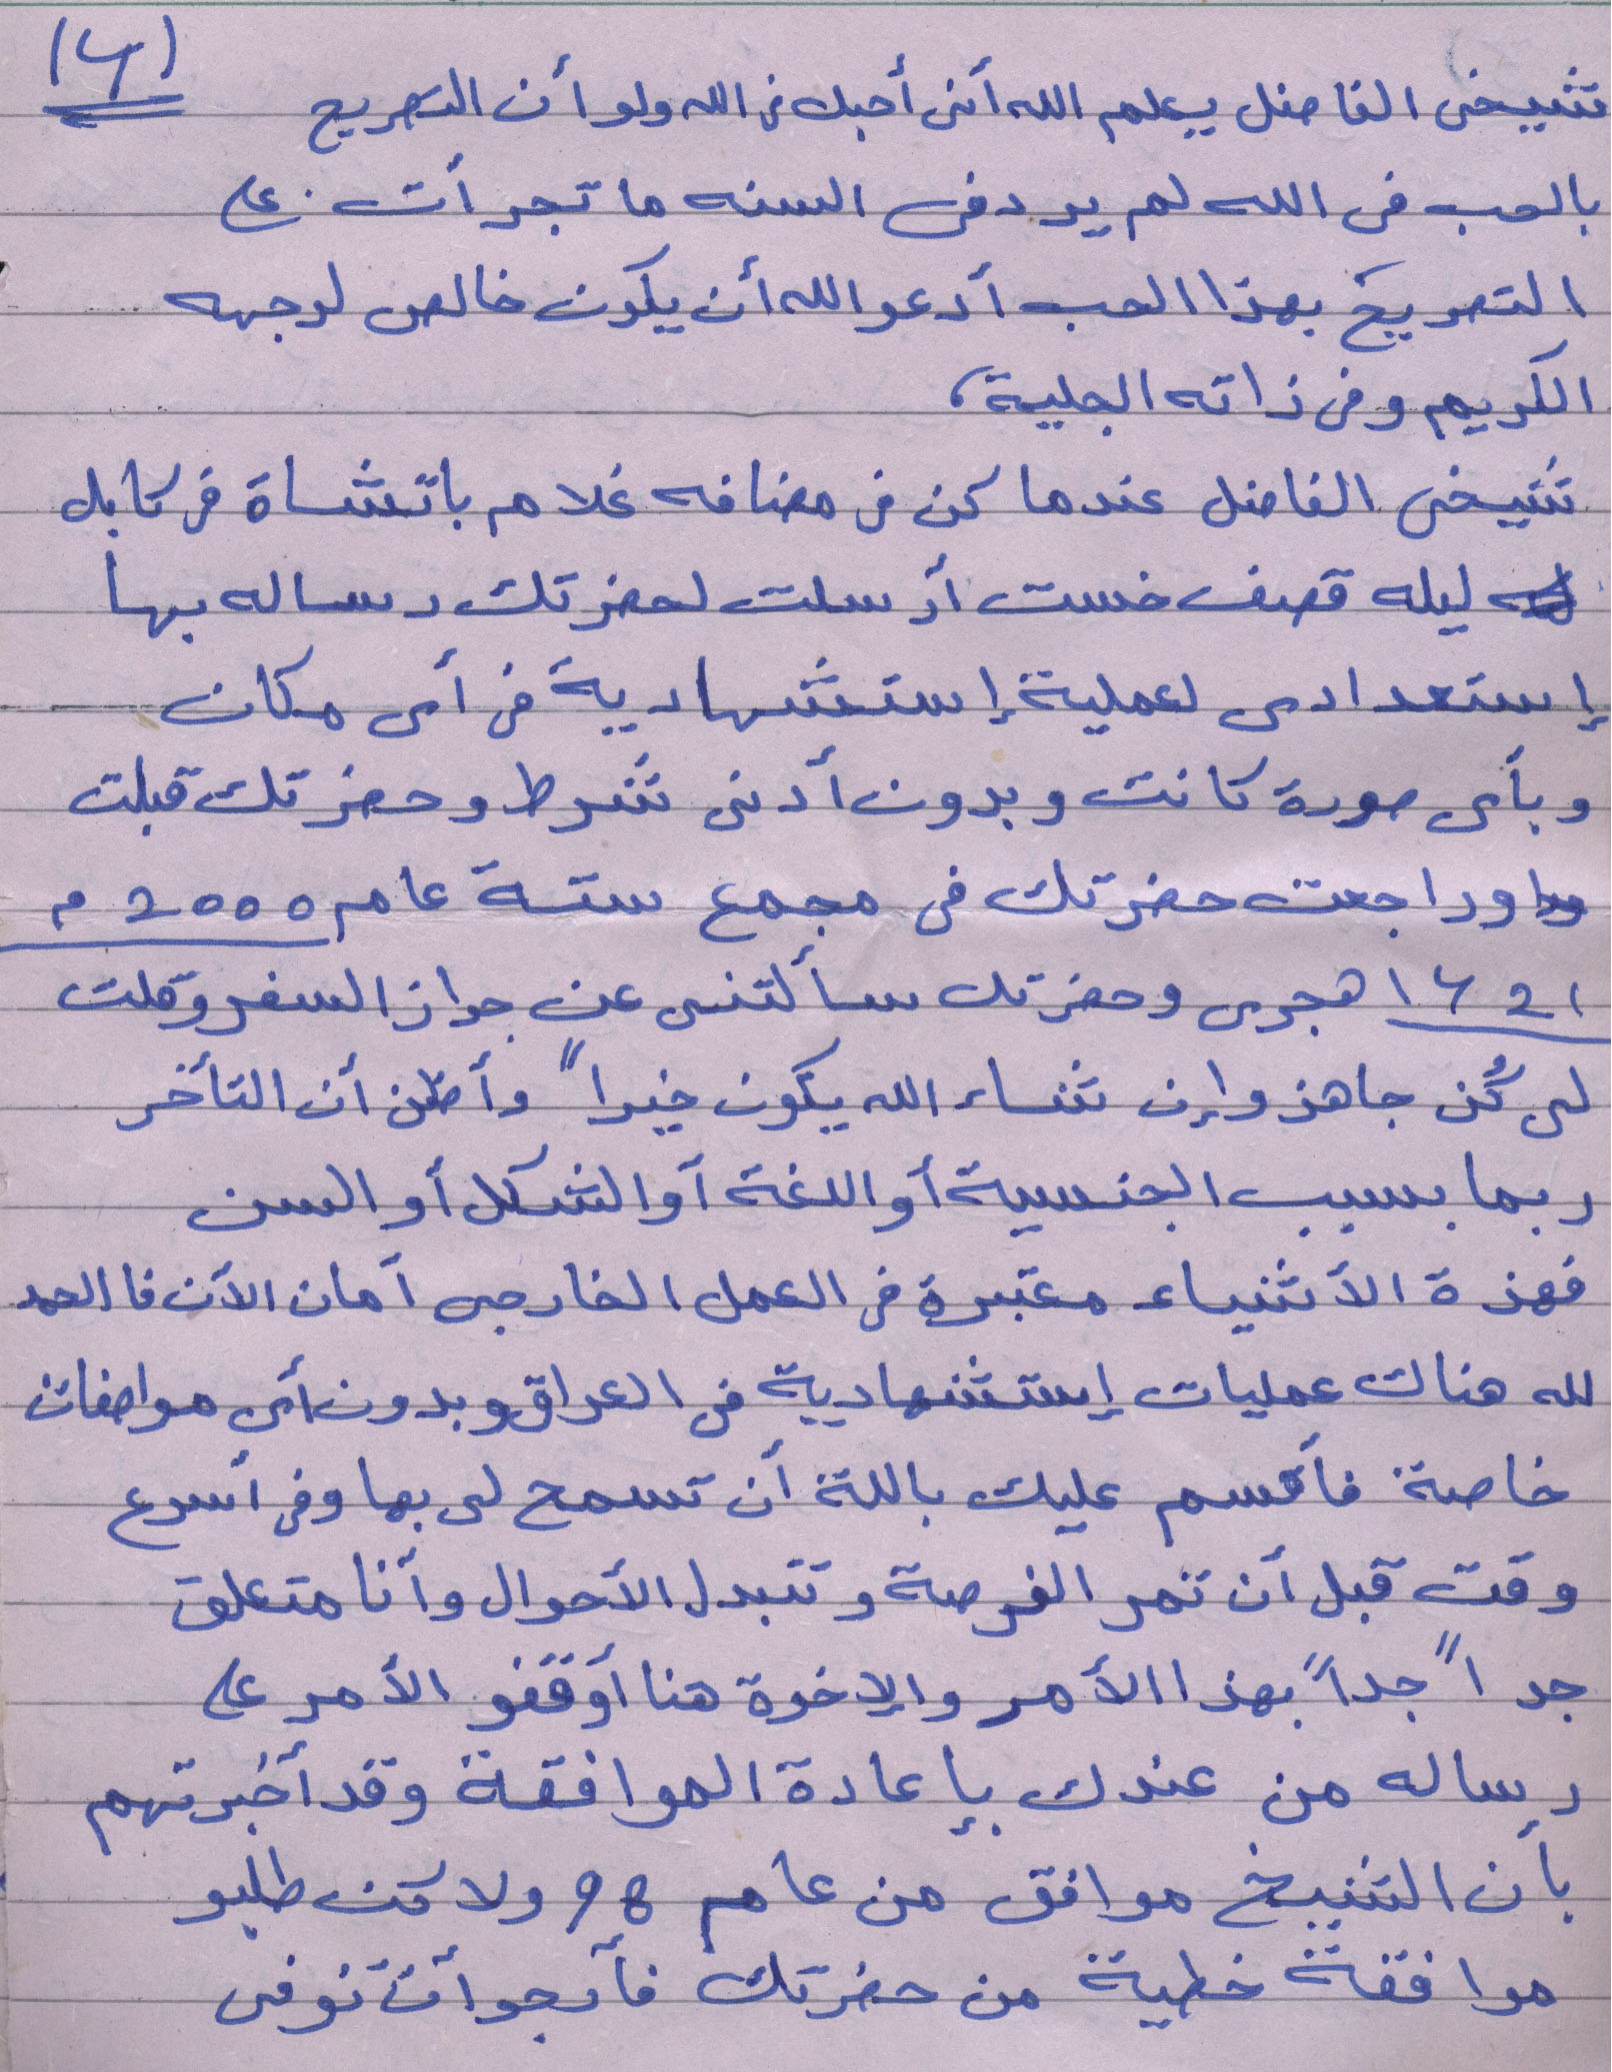 (٤)
شيخى الفاضل يعلم الله أنى أحبك فى الله ولو أن التصريح
بالحب فى الله لم يرد فى السنه ما تجرأت على
التصريح بهذا الحب أدعوا الله أن يكون خالص لوجهه
الكريم وفى ذاته الجلية،
شيخى الفاضل عندما كن فى مضافه غلام باتشاة فى كابل
ليله قصف خست أرسلت لحضرتك رساله بها
إستعدادى لعملية إستشهادية فى أى مكان
وبأى صورة كانت وبدون أدنى شرط وحضرتك قبلت
وراجعت حضرتك فى مجمع ستة عام 2000 م
١٤2١ هجرى وحضرتك سألتنى عن جواز السفر وقلت
لى كُن جاهز وإن شاء الله يكون خيراً وأظن أن التأخر
ربما بسبب الجنسية أو اللغة أو الشكل أو السن
فهذة الأشياء معتبرة فى العمل الخارجى أمان الأن فا الحمد
لله هناك عمليات إستشهادية فى العراق وبدون أى مواصفات
خاصة فأقسم عليك باللة أن تسمح لى بها وفى أسرع
وقت قبل أن تمر الفرصة وتتبدل الأحوال وأنا متعلق
جداً جداً بهذا الأمر والإخوة هنا أوقفو الأمر على
رساله من عندك بإعادة الموافقة وقد أخبرتهم
بأن الشيخ موافق من عام 98 ولاكن طلبو
موافقة خطية من حضرتك فأرجوا أن توفى